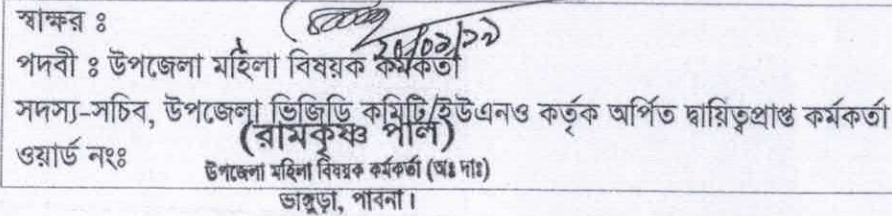 স্বাক্ষর ঃ
২০/০১/১৯
পদবী ঃ উপজেলা মহিলা বিষয়ক কর্মকর্তা
সদস্য-সচিব, উপজেলা ভিজিডি কমিটি/ইউএনও কর্তৃক অর্পিত দ্বায়িত্বপ্রাপ্ত কর্মকর্তা
(রামকৃষ্ণ পাল)
ওয়ার্ড নংঃ
উপজেলা মহিলা বিষয়ক কর্মকর্তা (অঃ দাঃ)
ভাঙ্গুড়া, পাবনা।